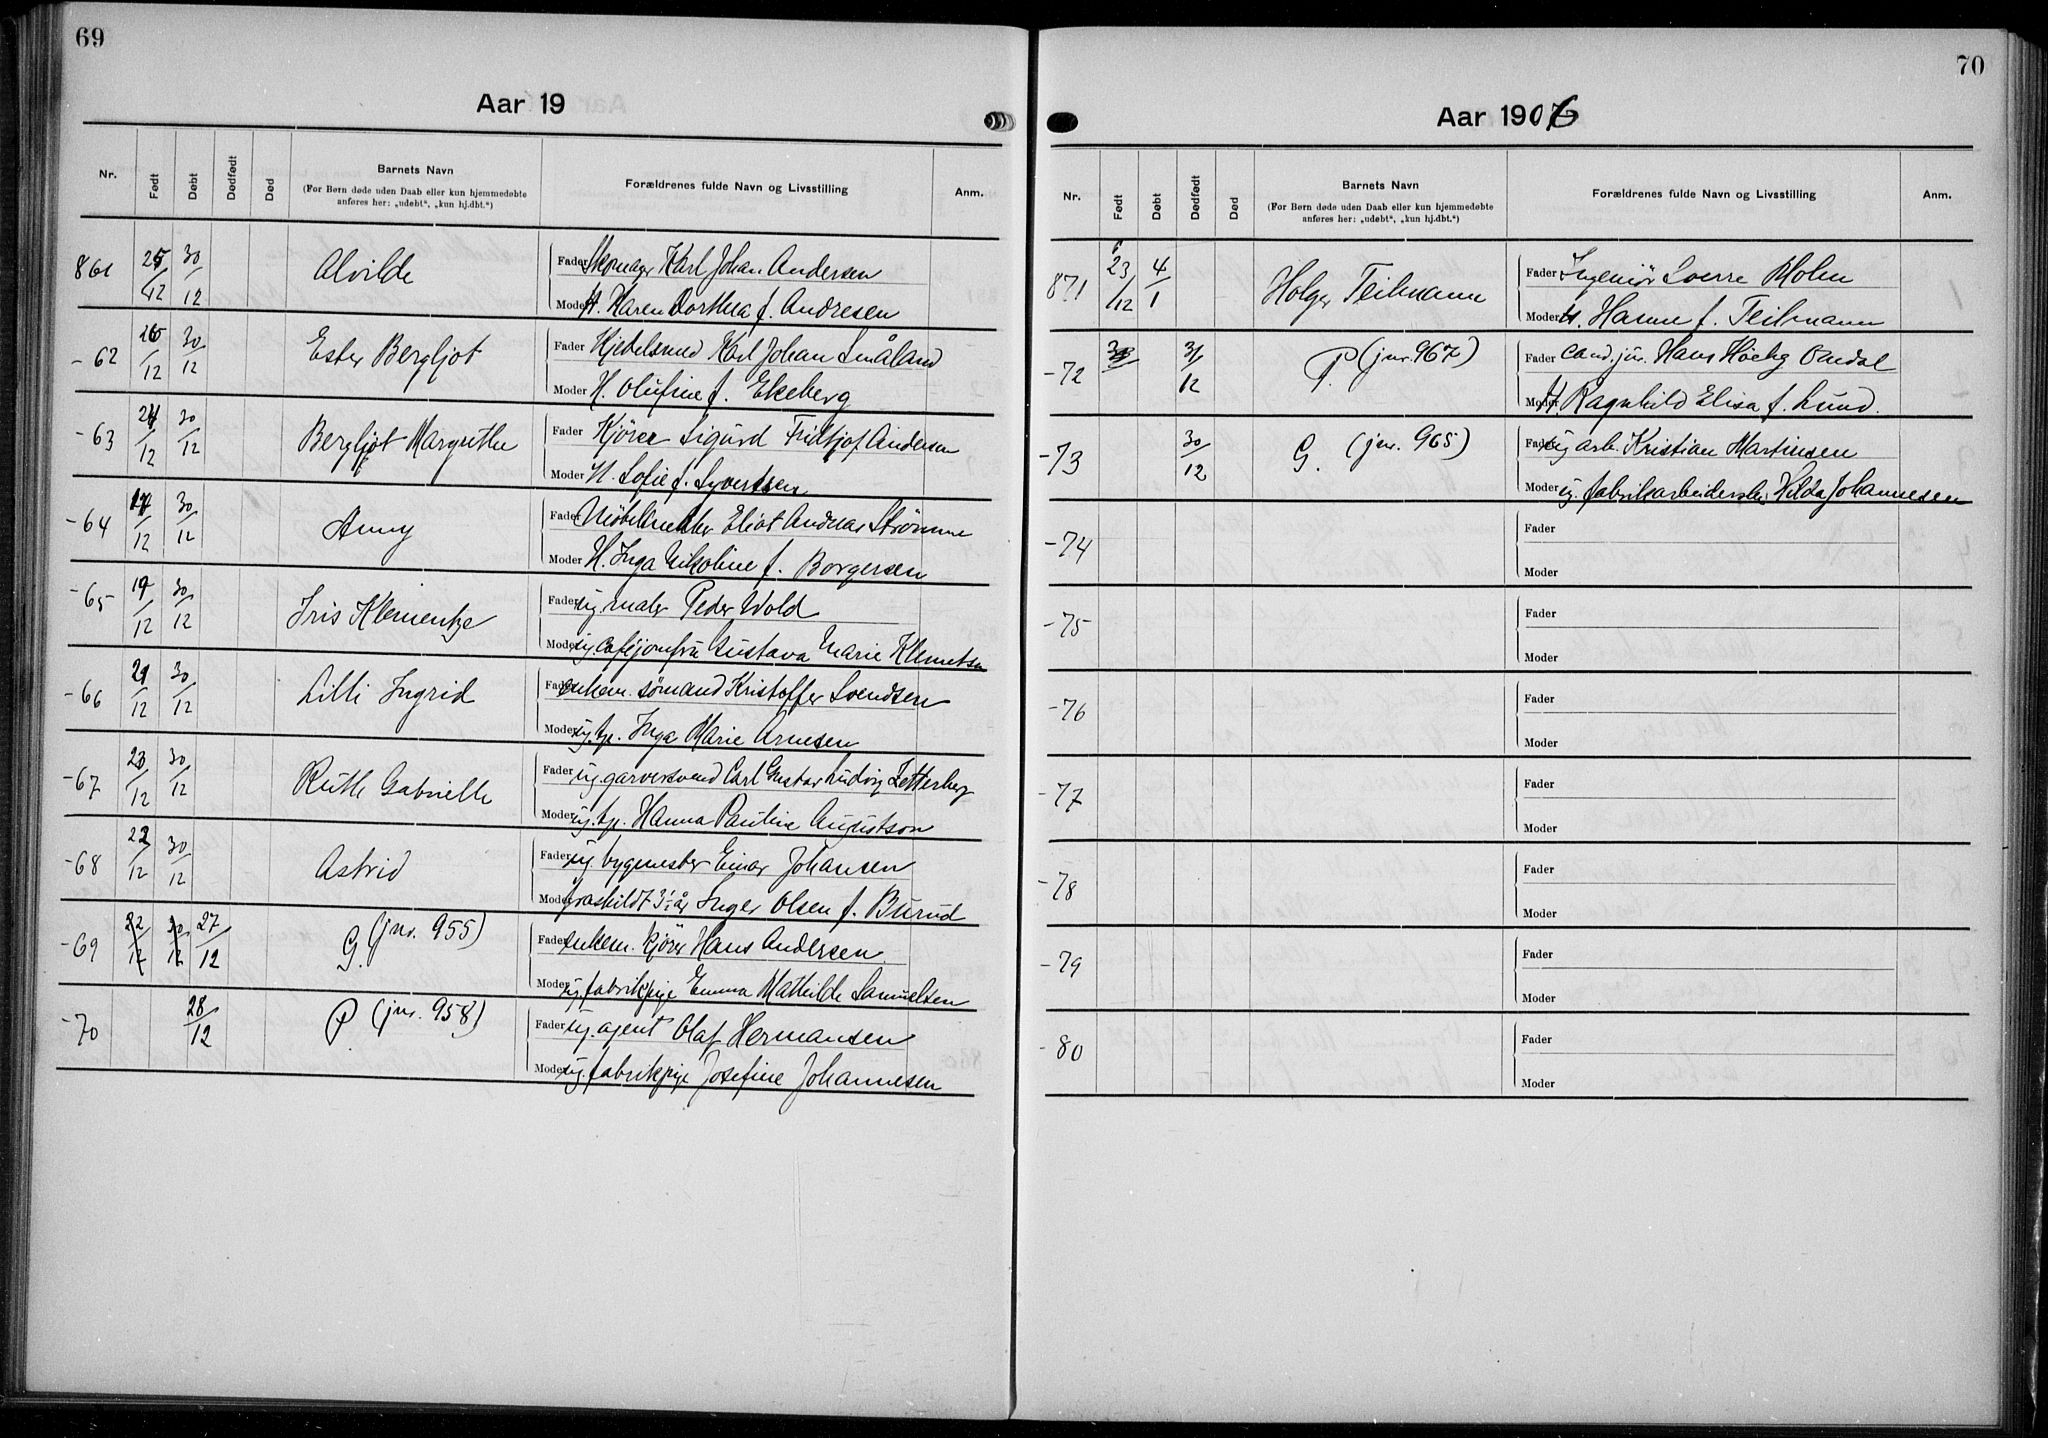 69
Aar 19
Nr. Født Døbt Dødfødt Død Barnets Navn Forældrenes fulde Navn og Livsstilling Anm.
(For Børn døde uden Daab eller kun hjemmedøbte
anføres her: „udøbt“, „kun hj.dbt.“)
861 25/12 30/12 Alvilde Fader Skomager Karl Johan Andersen
Moder H. Karen Dorthea f. Andresen
-62 26/12 30/12 Ester Bergljot Fader Kjedelsmed Karl Johan Småland
Moder H. Olufine f. Ekeberg
-63 30/12 Bergljot Margrethe Fader Kjörer Sigurd Fridtjof Andersen
Moder H. Sofie f. Syvertsen
-64 30/12 Anny Fader Möbelsnekker Eliot Andreas Strömme
Moder H. Inga Nikoline f. Borgersen
-65 19/12 30/12 Iris Klementze Fader ug. maler Peder Wold
Moder ug. cafejomfru Gustava Marie Klemetsen
-66 21/12 30/12 Lilli Ingrid Fader enkem. sömand Kristoffer Svendsen
Moder ug. tp. Inga Marie Arnesen
-67 23/12 30/12 Ruth Gabrielle Fader ug. garversvend Carl Gustav Ludvig Zetterberg
Moder ug. tp. Hanna Pauline Augustson
-68 22/12 30/12 Astrid Fader ug. bygmester Einar Johansen
Moder fraskildt 3 1/2 år Inger Olsen f. Burud
-69 22/12 30/12 27/12 G. (jnr. 955) Fader enkem. kjörer Hans Andersen
Moder ug. fabrikpige Emma Mathilde Samuelsen
-70 28/12 P. (jnr. 958) Fader ug. agent Olaf Hermansen
Moder ug. fabrikpige Josefine Johannesen
70
Aar 1906
Nr. Født Døbt Dødfødt Død Barnets Navn Forældrenes fulde Navn og Livsstilling Anm.
(For Børn døde uden Daab eller kun hjemmedøbte
anføres her: „udøbt“, „kun hj.dbt.“)
871 23/12 4/1 Holger Teilmann Fader Ingeniör Sverre Holm
Moder H. Hanne f. Teilmann
-72 31/12 P. (jnr. 967) Fader cand. jur. Hans Höeg Omdal
Moder H. Ragnhild Elisa f. Lund.
-73 30/12 G. (jnr. 965) Fader ug arb. Kristian Martinsen
Moder ug. fabrikarbeiderske Hilda Johannesen
-74 Fader
Moder
-75 Fader
Moder
-76 Fader
Moder
-77 Fader
Moder
-78 Fader
Moder
-79 Fader
Moder
-80 Fader
Moder